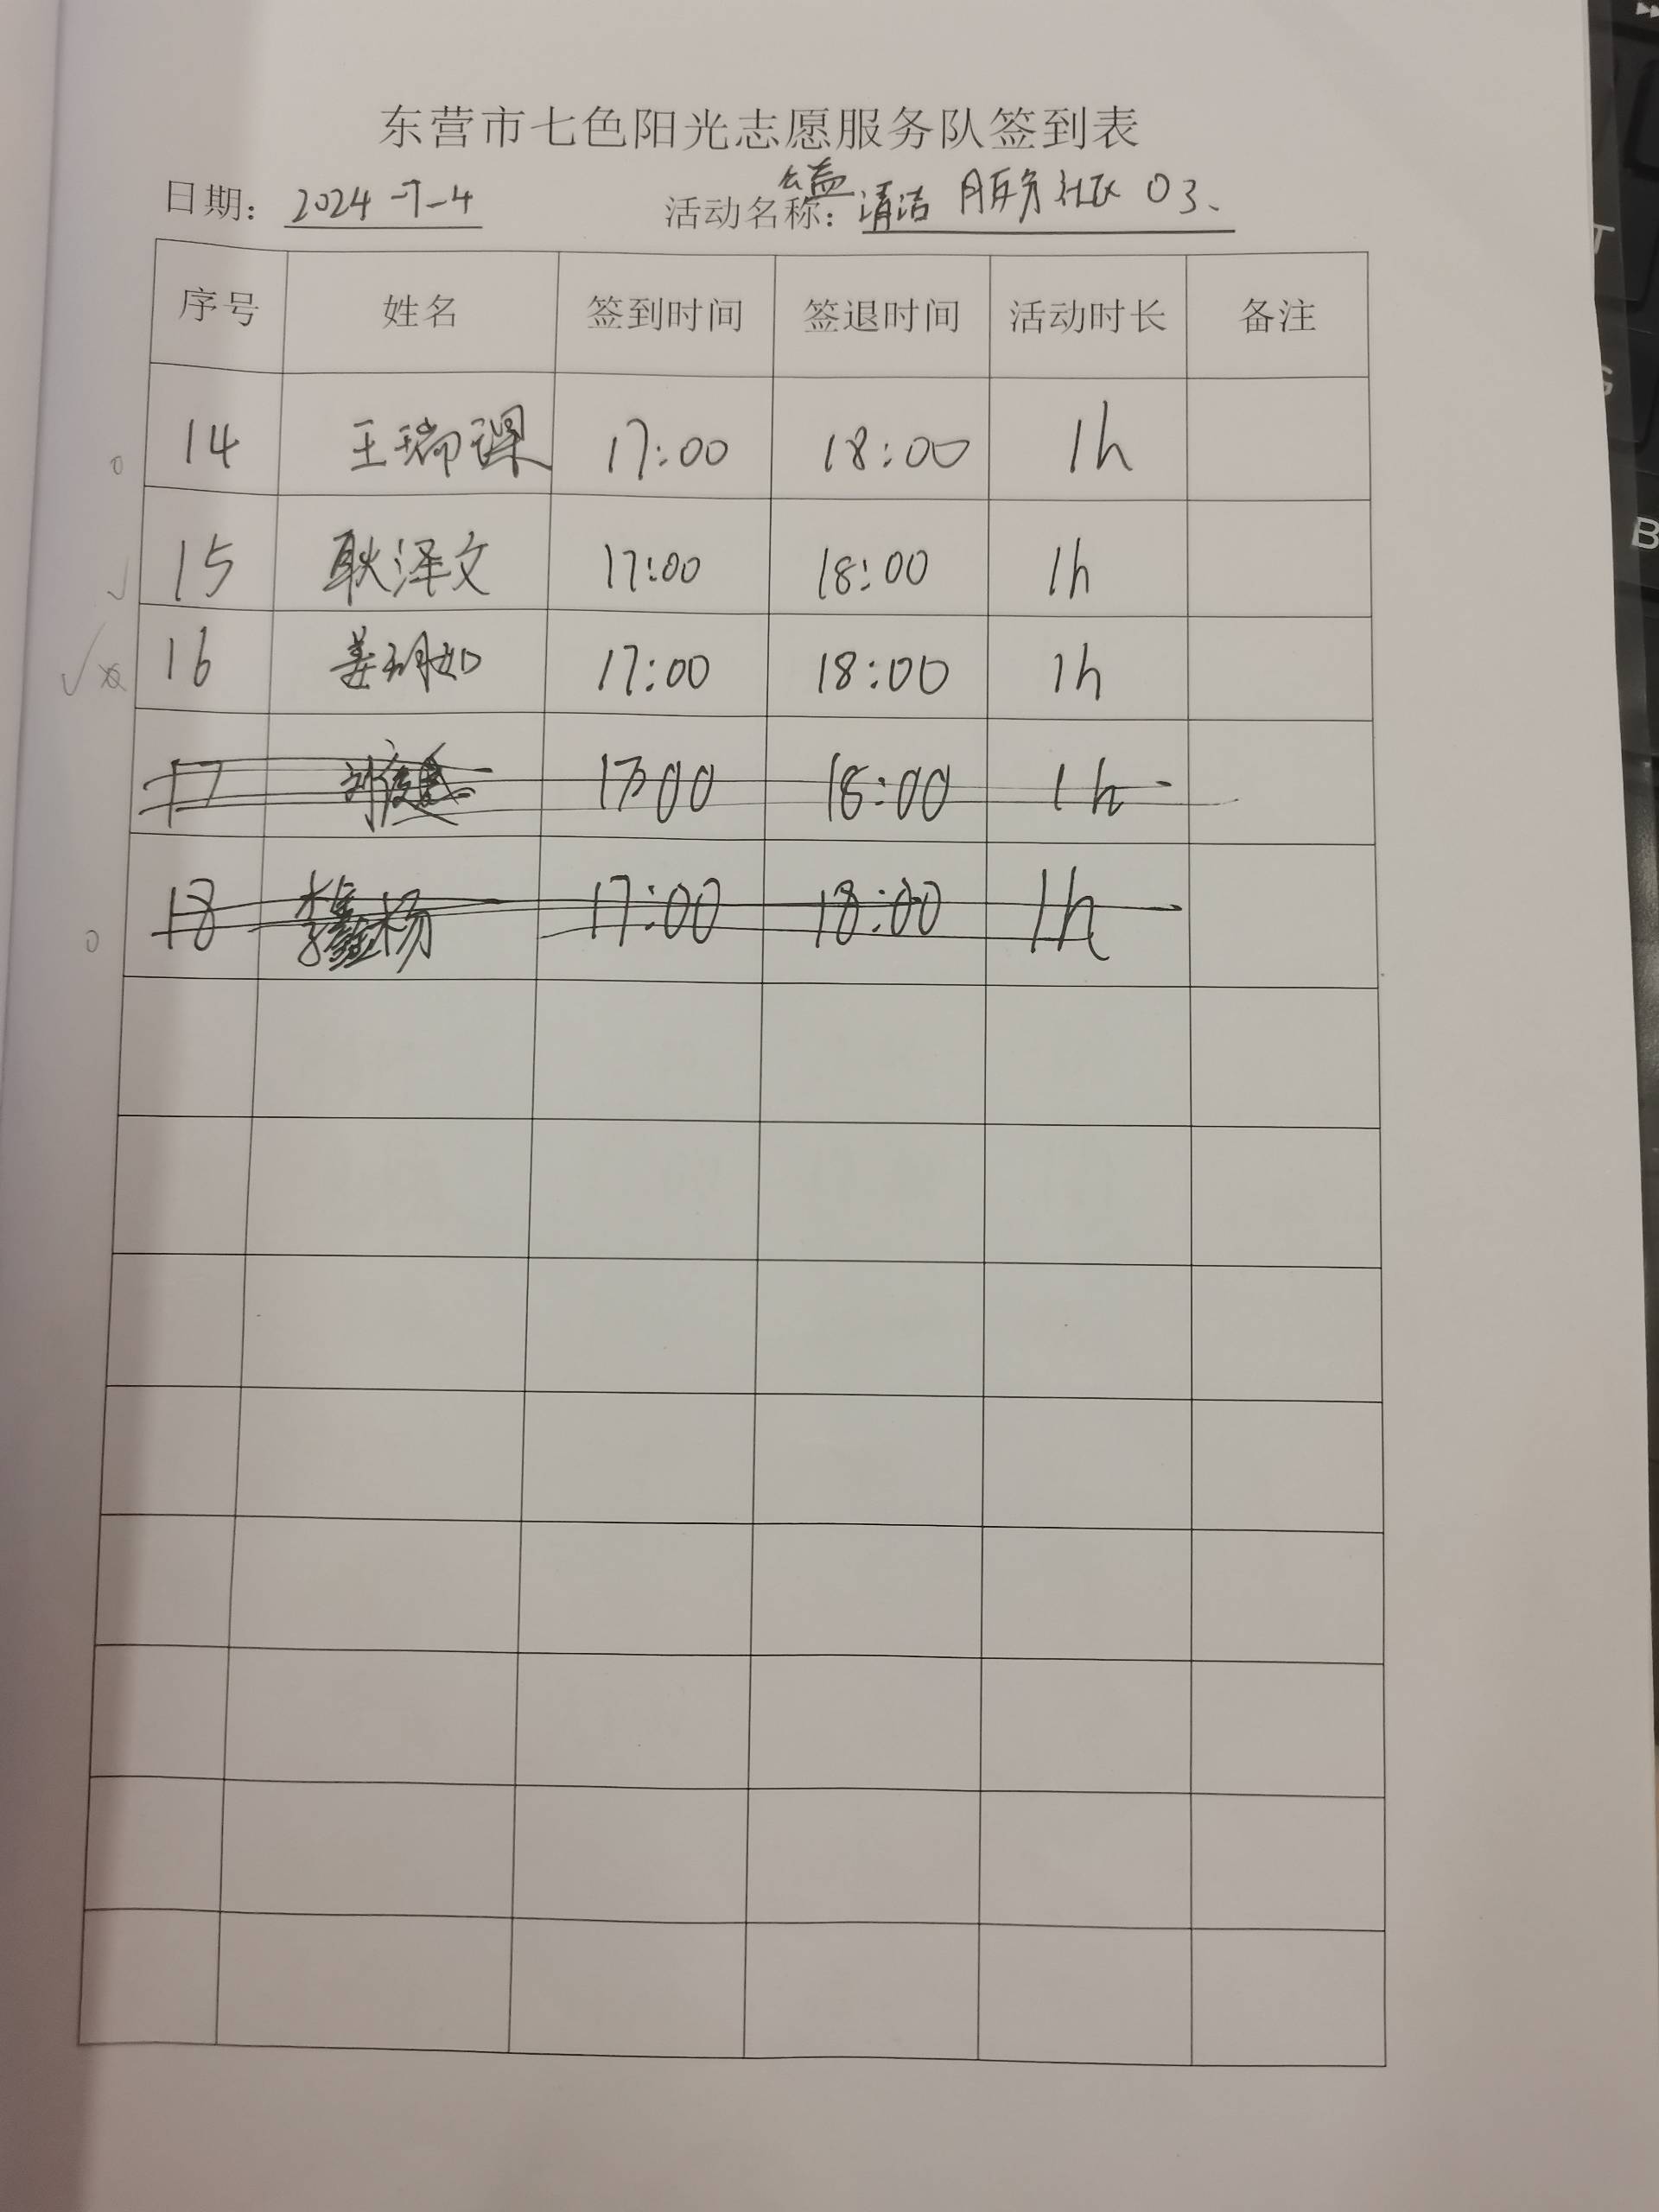 东营市七色阳光志愿服务队签到表
日期: 2024-7-4 活动名称: 公益清洁 服务社区 03、
序号 姓名 签到时间 签退时间 活动时长 备注
14 王瑞 17:00 18:00 1h
15 耿泽文 17:00 18:00 1h
16 姜如 17:00 18:00 1h
17 17:00 18:00 1h
18 李鑫杨 17:00 18:00 1h
B